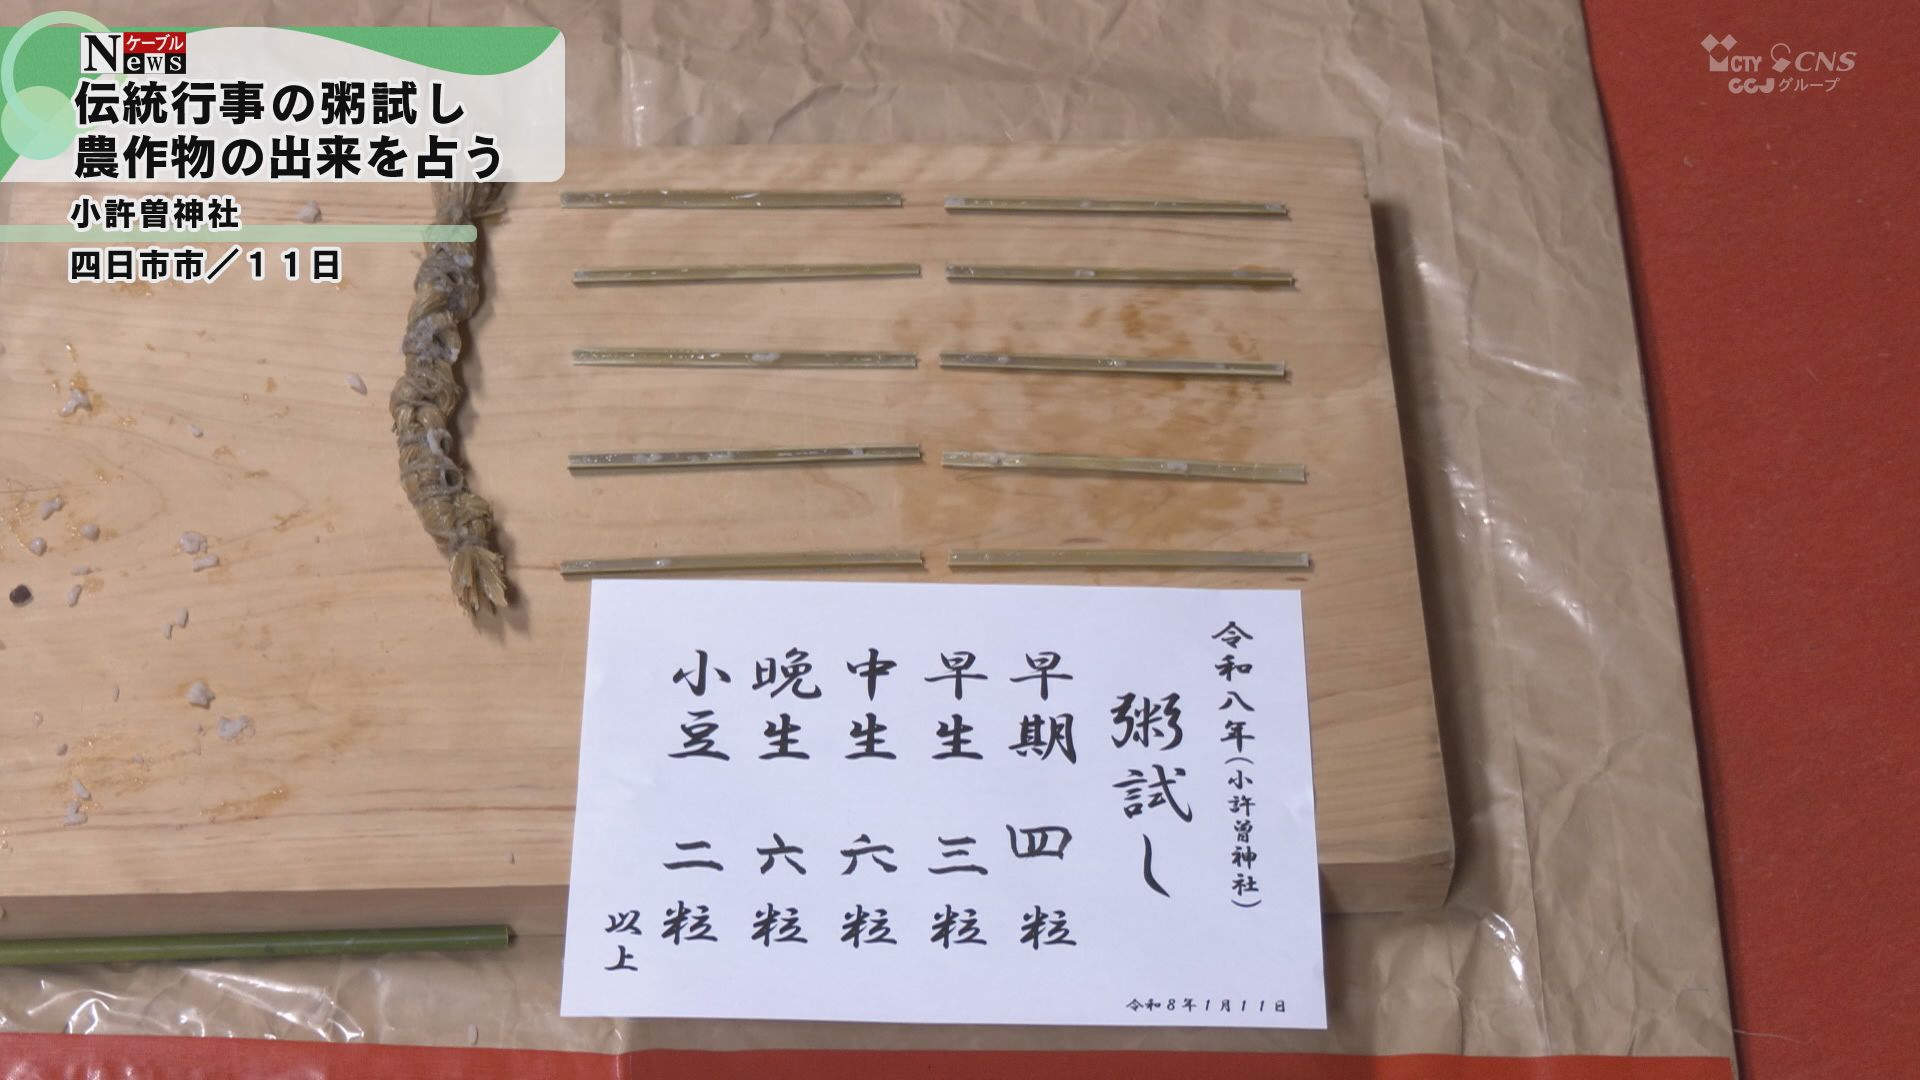 ケーブル
News
伝統行事の粥試し
農作物の出来を占う
小許曽神社
四日市市／１１日
CTY CNS
CCJグループ
令和八年(小許曾神社)
粥試し
早期 四粒
早生 三粒
中生 六粒
晩生 六粒
小豆 二粒
以上
令和８年１月１１日